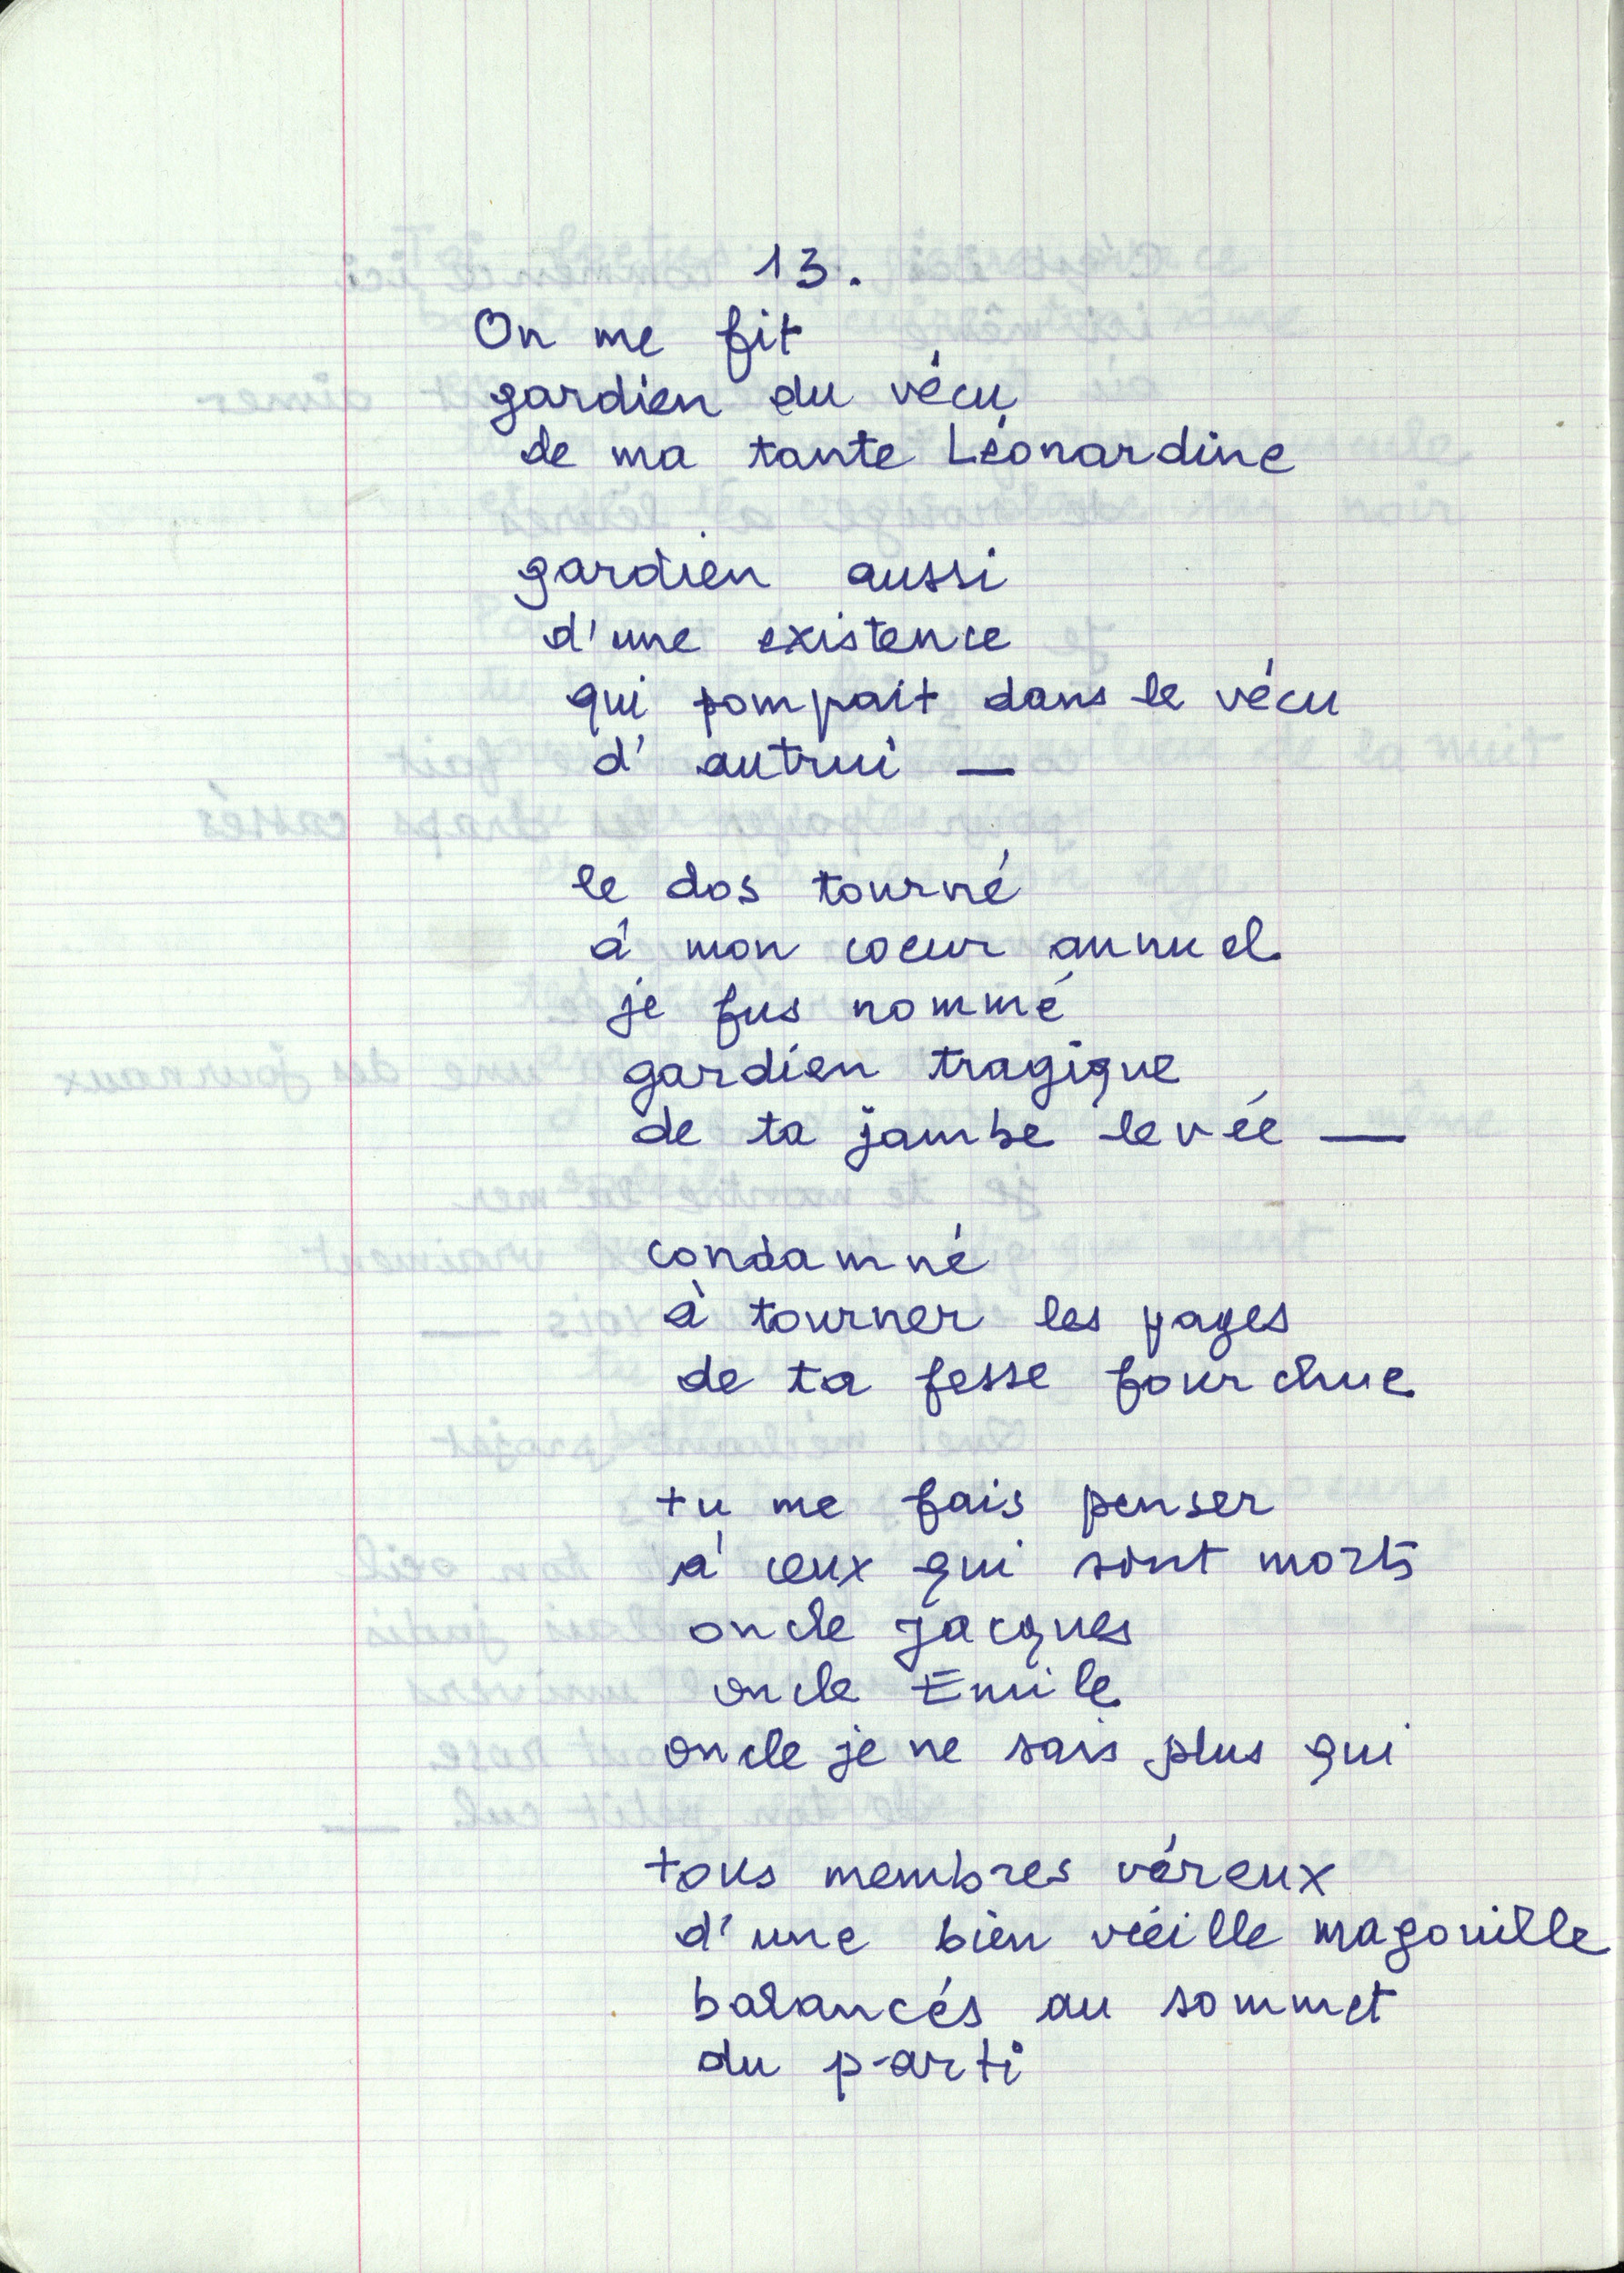 13.
On me fit
gardien du vécu
de ma tante Léonardine
gardien aussi
d'une existence
qui pompait dans le vécu
d'autrui —
le dos tourné
à mon coeur annuel
je fus nommé
gardien tragique
de ta jambe levée —
condamné
à tourner les pages
de ta fesse fourchue
tu me fais penser
à ceux qui sont morts
oncle Jacques
oncle Emile
oncle je ne sais plus qui
tous membres véreux
d'une bien vieille magouille
balancés au sommet
du parti